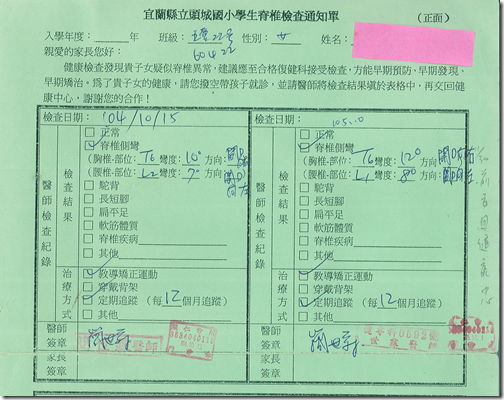 宜蘭縣立頭城國小學生脊椎檢查通知單 (正面)
入學年度：　年　班級：　性別：女　姓名：
60422
親愛的家長您好：
健康檢查發現貴子女疑似脊椎異常，建議應至合格復健科接受檢查，方能早期預防，早期發現，
早期矯治。為了貴子女的健康，請您撥空帶孩子就診，並請醫師將檢查結果填於表格中，再交回健
康中心，謝謝您的合作！
醫師檢查紀錄
檢查日期：104/10/15
檢查結果
□ 正常
☑ 脊椎側彎
(胸椎-部位：T6 彎度：10° 方向：
(腰椎-部位：L2 彎度：7° 方向：
□ 駝背
□ 長短腳
□ 扁平足
□ 軟筋體質
□ 脊椎疾病
□ 其他
治療方式
☑ 教導矯正運動
□ 穿戴背架
☑ 定期追蹤 (每12個月追蹤)
□ 其他
醫師簽章
家長簽章
檢查日期：105.
檢查結果
□ 正常
☑ 脊椎側彎
(胸椎-部位：T6 彎度：12° 方向：
(腰椎-部位：L1 彎度：8° 方向：
□ 駝背
□ 長短腳
□ 扁平足
□ 軟筋體質
□ 脊椎疾病
□ 其他
治療方式
☑ 教導矯正運動
□ 穿戴背架
☑ 定期追蹤 (每12個月追蹤)
□ 其他
醫師簽章
家長簽章